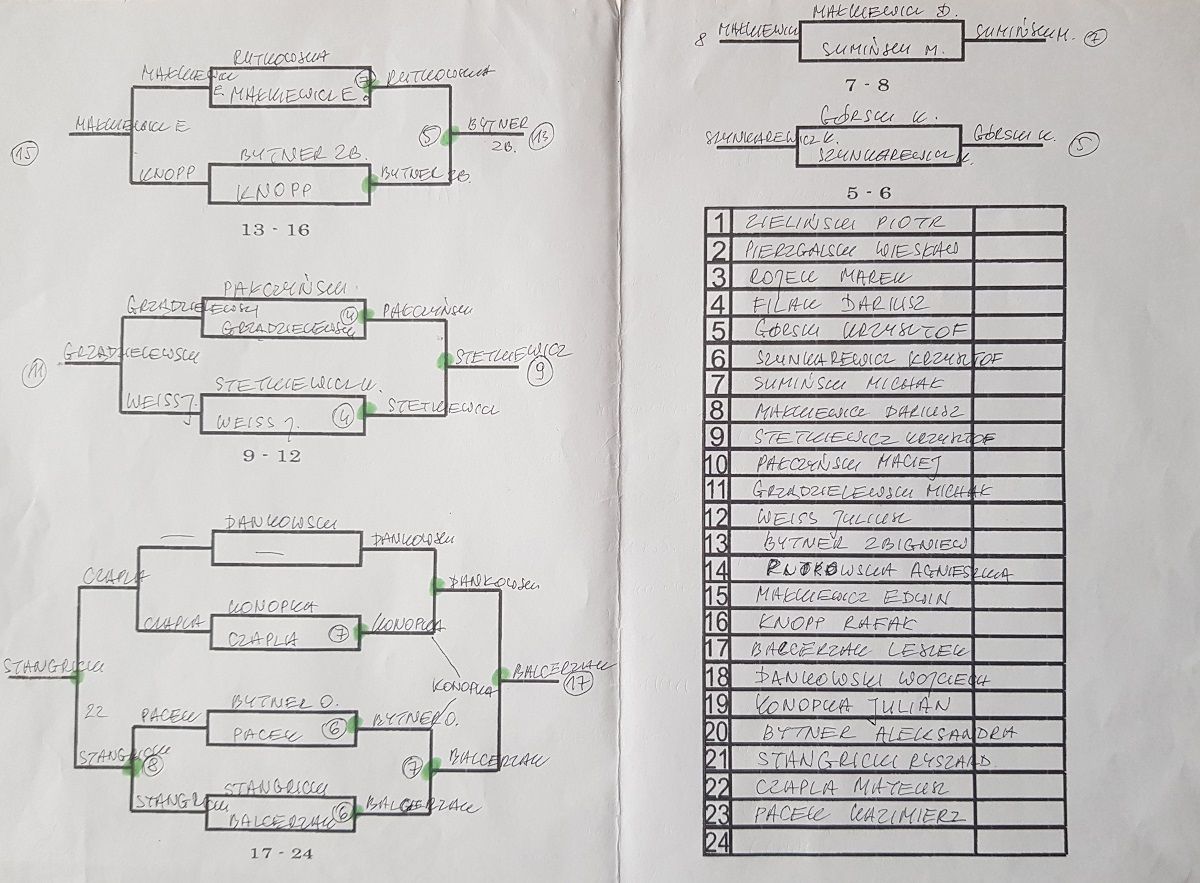 RUTKOWSKA
MAKKIEWICZ E.
RUTKOWSKA
MAKKIEWICZ E.
7
MAKKIEWICZ E
5
BYTNER ZB.
13
15
KNOPP
BYTNER ZB.
KNOPP
BYTNER ZB.
13 - 16
PAKCZYŃSKI
GRZĄDZIELEWSKI
GRZĄDZIELEWSKI
4
PAKCZYŃSKI
GRZĄDZIELEWSKI
11
STETKIEWICZ
9
WEISS J
STETKIEWICZ K.
WEISS J.
4
STETKIEWICZ
9 - 12
DANKOWSKI
DANKOWSKI
CZAPLA
DANKOWSKI
KONOPKA
CZAPLA
CZAPLA
7
KONOPKA
STANGRICKI
BALCERZAK
17
KONOPKA
22
PACEK
BYTNER O.
PACEK
6
BYTNER O.
STANGRICKI
8
7
BALCERZAK
STANGRICKI
STANGRICKI
BALCERZAK
6
BALCERZAK
17 - 24
MAKKIEWICZ D.
8
MAKKIEWICZ
SUMIŃSKI M.
SUMIŃSKI M.
7
7 - 8
GÓRSKI K.
SZYNKAREWICZ K.
SZYNKAREWICZ K.
GÓRSKI K.
5
5 - 6
1 ZIELIŃSKI PIOTR
2 PIERZGALSKI WIESŁAW
3 ROJEK MAREK
4 FILAK DARIUSZ
5 GÓRSKI KRZYSZTOF
6 SZYNKAREWICZ KRZYSZTOF
7 SUMIŃSKI MICHAŁ
8 MAKKIEWICZ DARIUSZ
9 STETKIEWICZ KRZYSZTOF
10 PAKCZYŃSKI MACIEJ
11 GRZĄDZIELEWSKI MICHAŁ
12 WEISS JULIUSZ
13 BYTNER ZBIGNIEW
14 RUTKOWSKA AGNIESZKA
15 MAKKIEWICZ EDWIN
16 KNOPP RAFAŁ
17 BALCERZAK LESZEK
18 DANKOWSKI WOJCIECH
19 KONOPKA JULIAN
20 BYTNER ALEKSANDRA
21 STANGRICKI RYSZARD
22 CZAPLA MATEUSZ
23 PACEK KAZIMIERZ
24